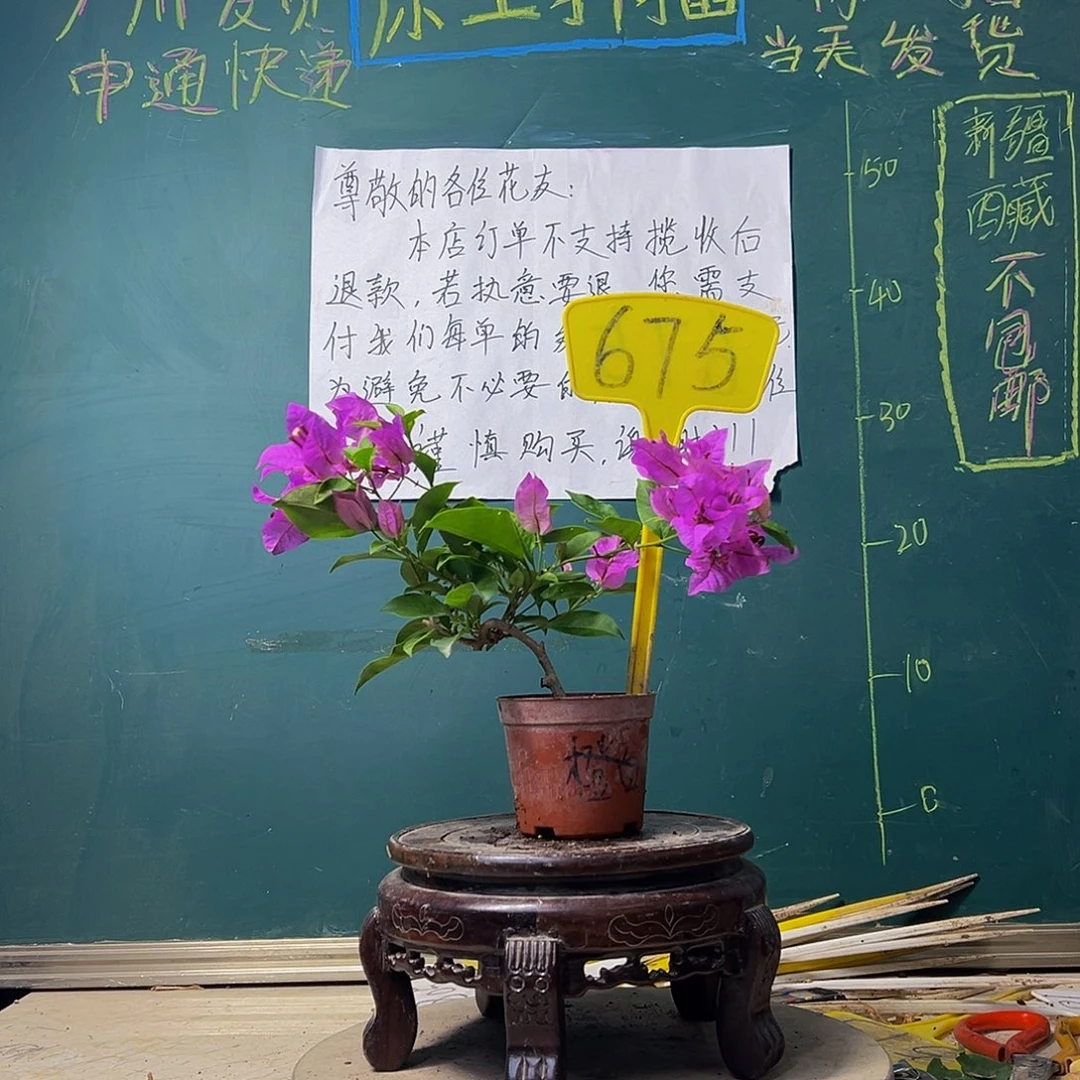 申通快递
当天发货
新疆
西藏
不包邮
尊敬的各位花友:
本店订单不支持揽收后
退款,若执意要退 你需支
付我们每单的
为避免不必要
位
谨慎购买,谢谢!!!
675
50
40
30
20
10
0